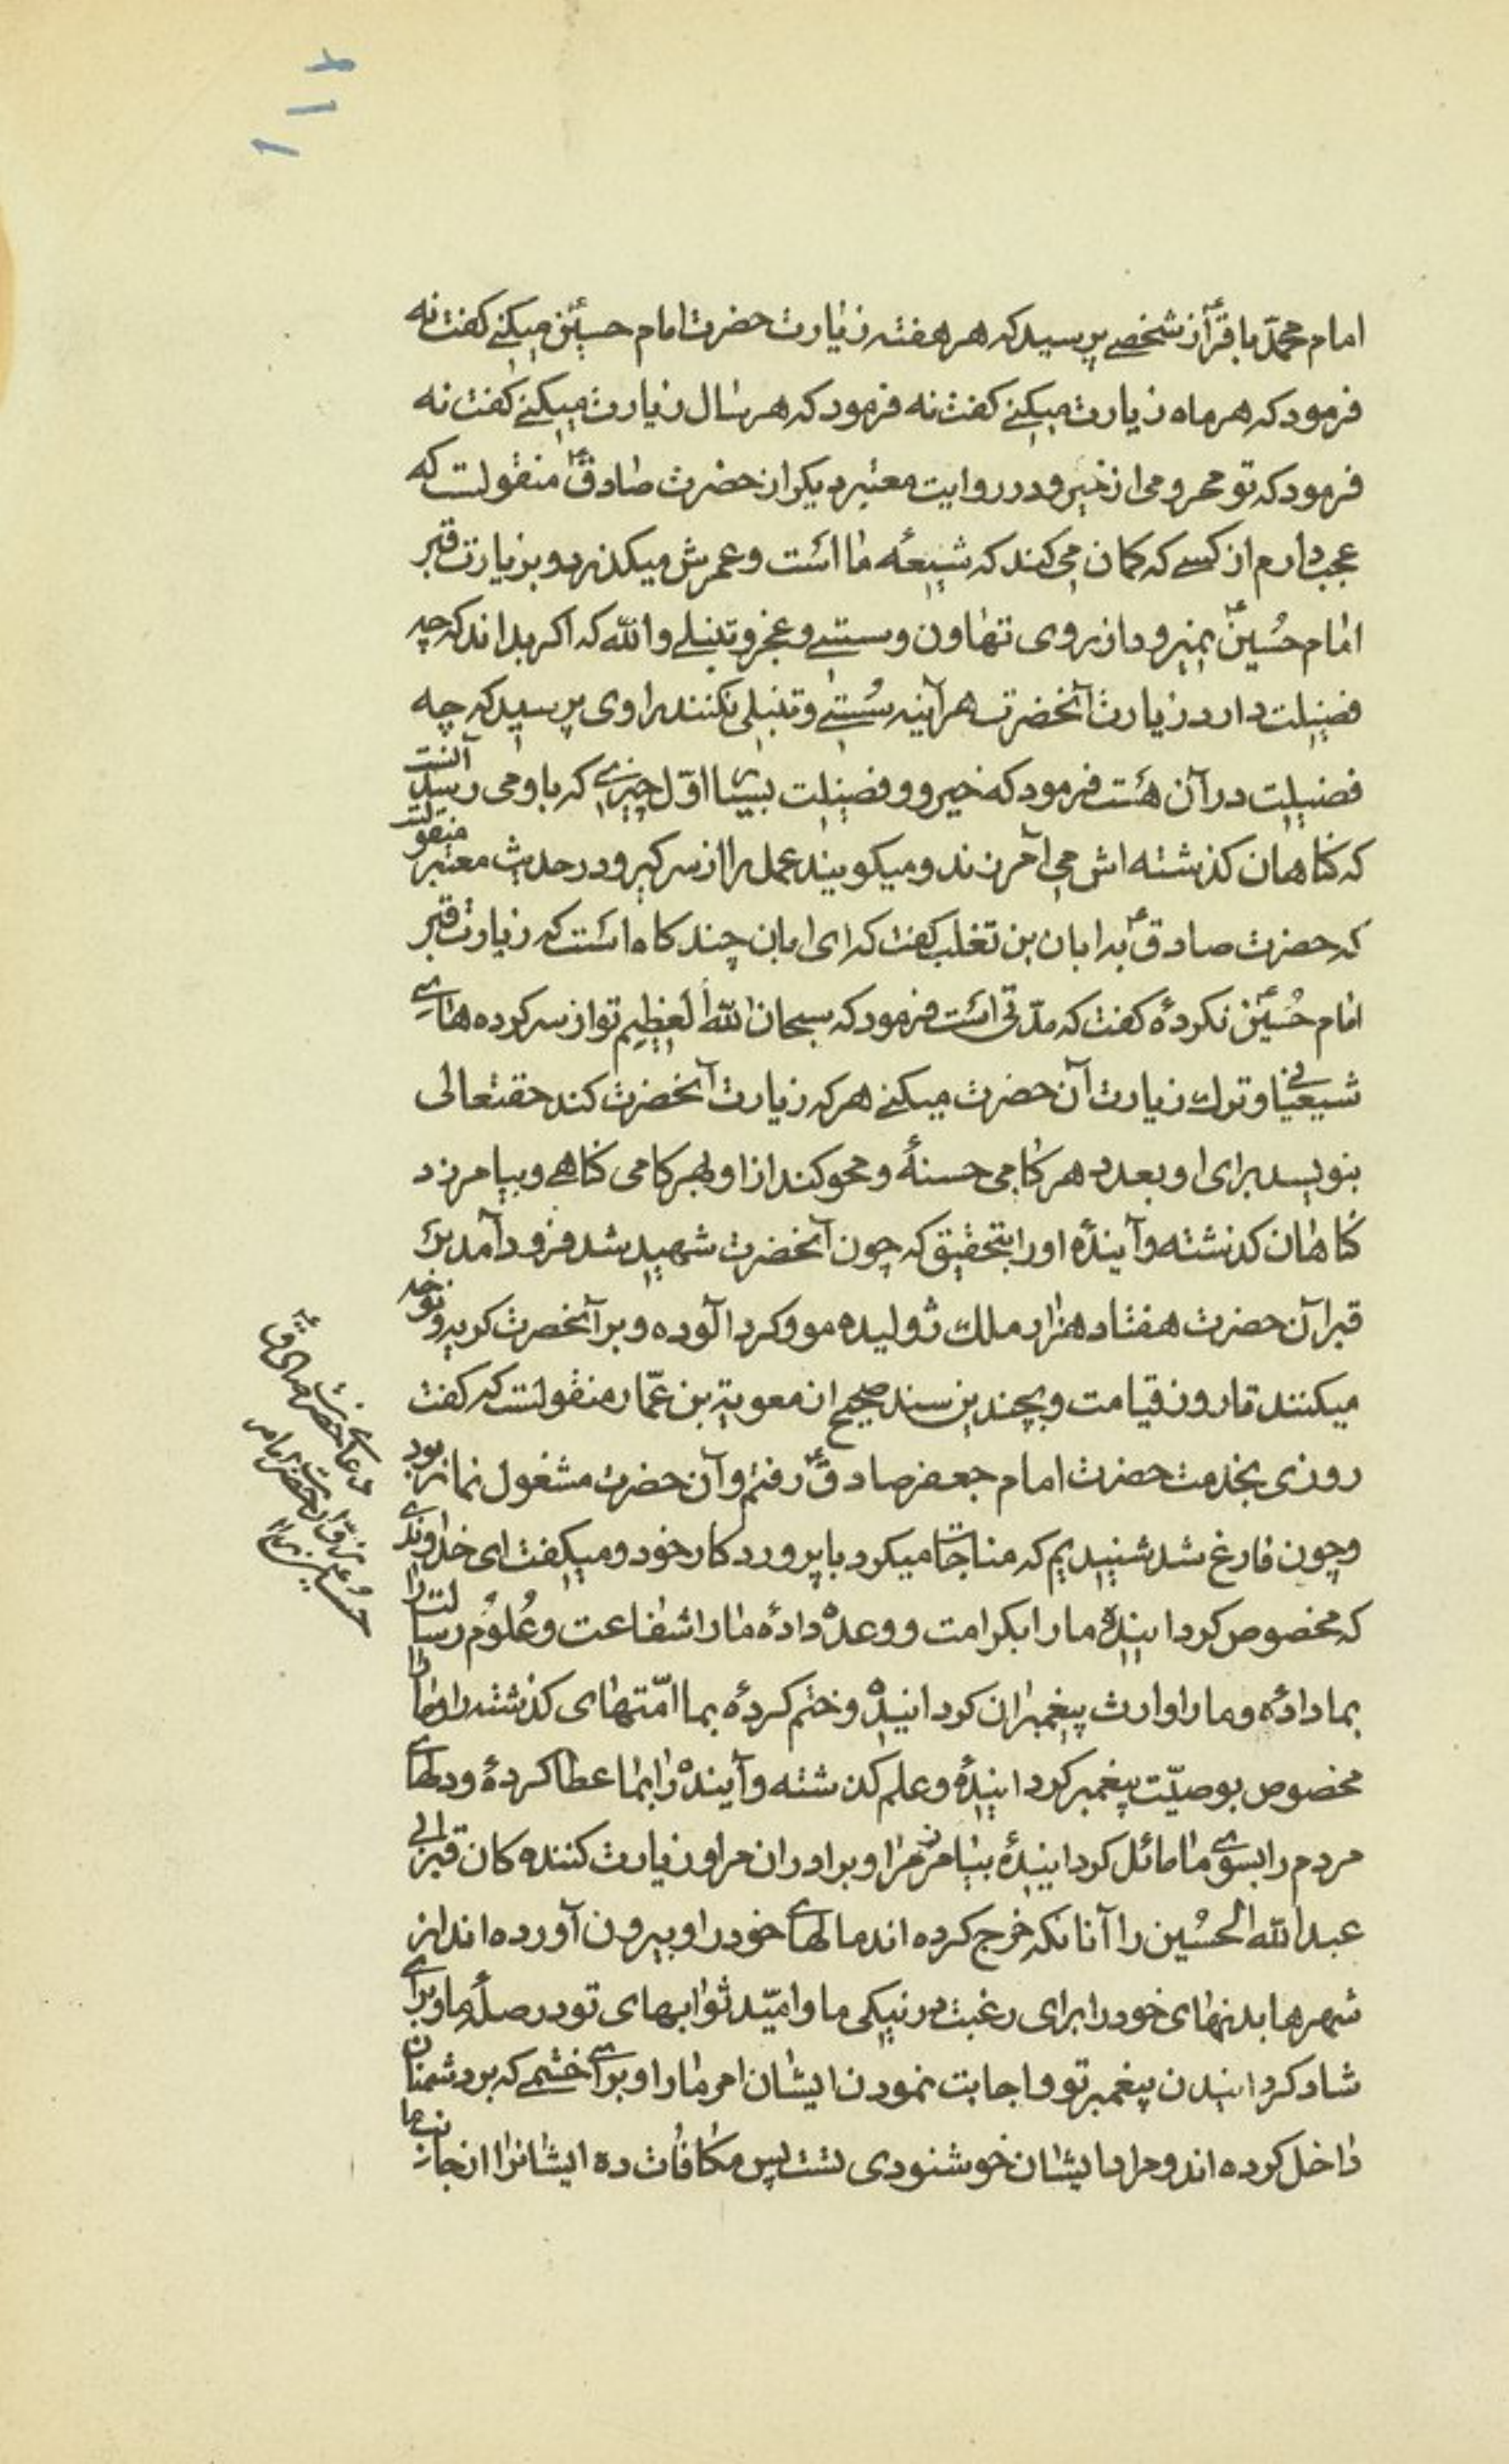 ۱۱۲
امام محمّد باقرؑ از شخصے پرسید که هر هفته زیارت حضرت امام حسینؑ میکنے کفت نه
فرمود که هر ماه زیارت میکنے کفت نه فرمود که هر سال زیارت میکنے کفت نه
فرمود که تو محرومی از خیر و در روایت معتبر دیکر از حضرت صادقؑ منقولست که
عجب دارم از کسے که کمان می کند که شیعهٔ ما است و عمرش میکذرد و بزیارت قبر
امام حُسینؑ نمیرود از روی تهاون و سستے و عجز و تنبلے والله که اکر بداند که چه
فضیلت دارد زیارت آنحضرت هرآینه سُستے و تنبلی نکنند راوی پرسید که چه
فضیلت در آن هست فرمود که خیر و فضیلت بسیار اوّل چیزی که باو می رسد آنست
که کناهان کذشته اش می آمرزند و میکویند عمل را از سر کیر و در حدیث معتبر منقولست
که حضرت صادقؑ به ابان بن تغلب کفت که ای ابان چند کاه است که زیارت قبر
امام حُسینؑ نکردهٔ کفت که مدّتی است فرمود که سبحان الله العظیم تو از سرکرده های
شیعیانی و ترک زیارت آن حضرت میکنے هر که زیارت آنحضرت کند حقتعالی
بنویسد برای او بعدد هر کامی حسنهٔ و محو کند از او بهر کامی کناهے و بیامرزد
کناهان کذشته و آیندهٔ او را بتحقیق که چون آنحضرت شهید شد فرود آمد بر
قبر آن حضرت هفتاد هزار ملک ژولیده مو و کرد آلوده و بر آنحضرت کریه و نوحه
میکنند تا روز قیامت و بچندین سند صحیح از معویة بن عمّار منقولست که کفت
روزی بخدمت حضرت امام جعفر صادقؑ رفتم و آن حضرت مشغول نماز بود
و چون فارغ شد شنیدیم که مناجات میکرد با پروردکار خود و میکفت ای خداوندی
که مخصوص کردانیدهٔ ما را بکرامت و وعده دادهٔ ما را شفاعت و عُلوُم رسالت را
بما دادهٔ و ما را وارث پیغمبران کردانیدهٔ و ختم کردهٔ بما امّتهای کذشته را و ما را
مخصوص بوصیّت پیغمبر کردانیدهٔ و علم کذشته و آینده را بما عطا کردهٔ و دلهای
مردم را بسوی ما مائل کردانیدهٔ بیامرز مرا و برادران مرا و زیارت کننده کان قبر ابی
عبدالله الحُسین را آنانکه خرج کرده اند مالهای خود را و بیرون آورده اند از
شهرها بدنهای خود را برای رغبت در نیکی ما و امیّد ثوابهای تو در صلهٔ ما و برای
شاد کردانیدن پیغمبر تو و اجابت نمودن ایشان امر ما را و برای خشمے که بر دشمنان
داخل کرده اند و مراد ایشان خوشنودی تست پس مکافات ده ایشانرا از جانب ما
دعای حضرت صادقؑ